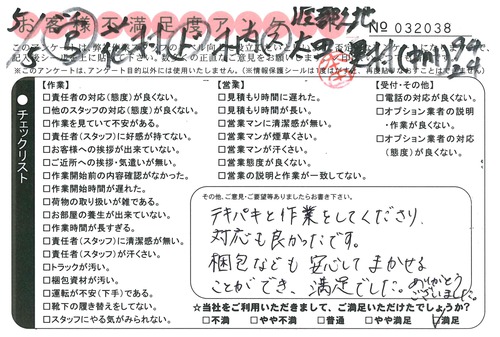 お客様不満足度アンケート
No 032038
※このアンケートは、アンケート目的以外には使用いたしません。
●チェックリスト
【作業】
□責任者の対応(態度)が良くない。
□他のスタッフの対応(態度)が良くない。
□作業を見ていて不安がある。
□責任者(スタッフ)に好感が持てない。
□お客様への挨拶が出来ていない。
□ご近所への挨拶・気遣いが無い。
□作業開始前の内容確認がなかった。
□作業開始時間が遅れた。
□荷物の取り扱いが雑である。
□お部屋の養生が出来ていない。
□作業時間が長すぎる。
□責任者(スタッフ)に清潔感が無い。
□責任者(スタッフ)が汗くさい。
□トラックが汚い。
□梱包資材が汚い。
□運転が不安(下手)である。
□靴下の履き替えをしてない。
□スタッフにやる気がみられない。
【営業】
□見積もり時間に遅れた。
□見積もり時間が長い。
□営業マンに清潔感が無い。
□営業マンが煙草くさい。
□営業マンが汗くさい。
□営業態度が良くない。
□営業の説明と作業が一致してない。
【受付・その他】
□電話の対応が良くない。
□オプション業者の説明・作業が良くない。
□オプション業者の対応(態度)が良くない。
その他、ご意見・ご要望等ありましたらお書き下さい。
テキパキと作業をしてくださり、
対応も良かったです。
梱包なども安心してまかせる
ことができ、満足でした。
ありがとう
ございました。
☆当社をご利用いただきまして、ご満足いただけたでしょうか?
□不満 □やや不満 □普通 □やや満足 □満足